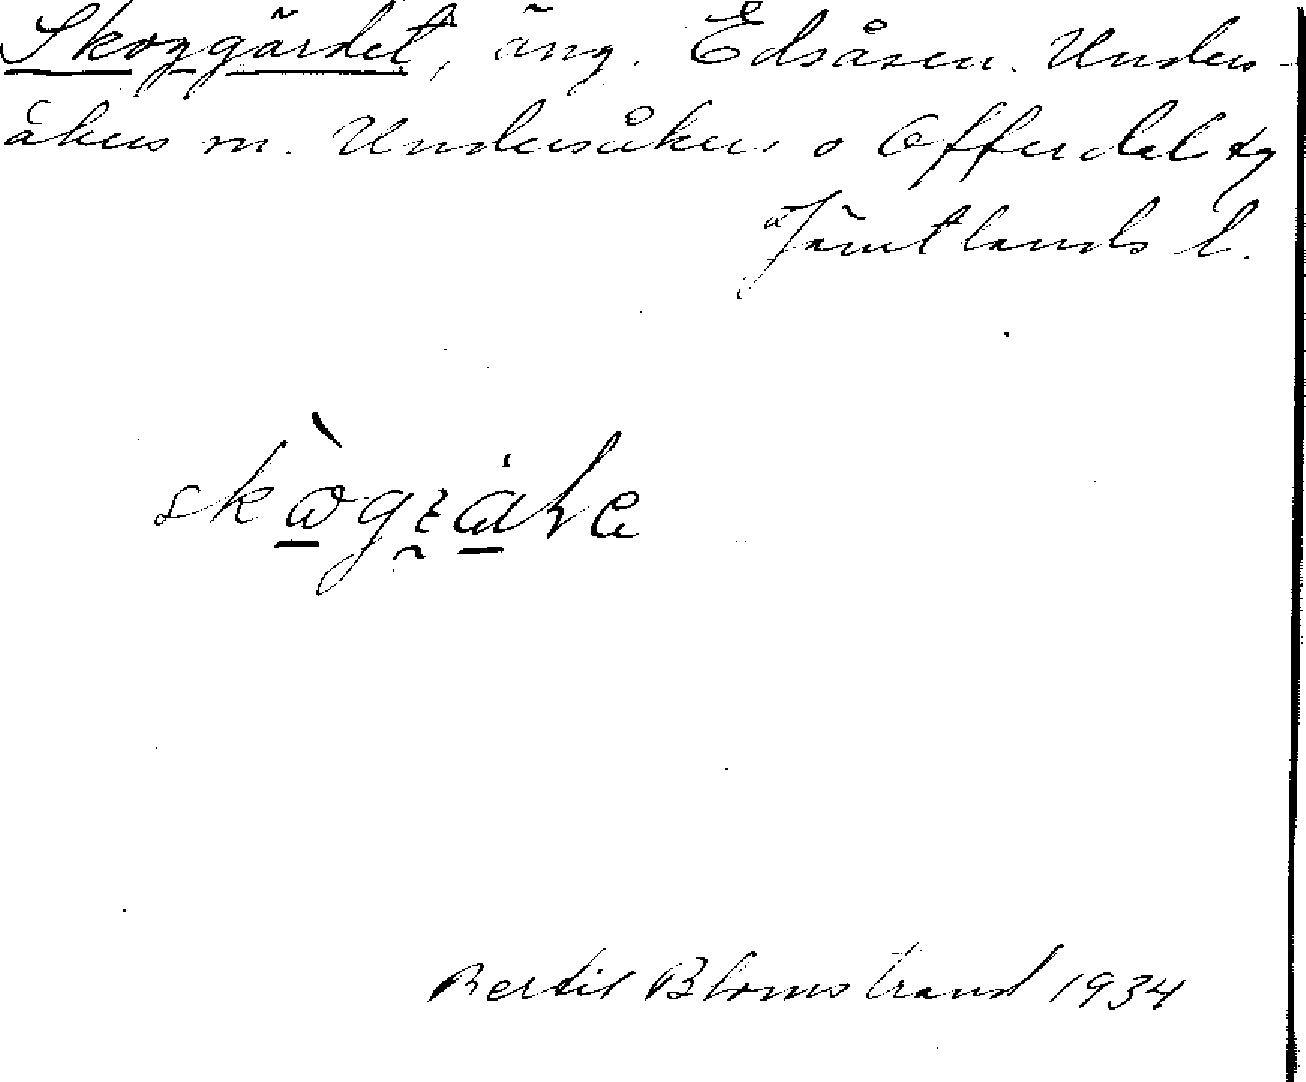 Skoggärdet, äng. Edsåsen. Unders-
åkers sn. Undersåkers o Offerdals tg
Jämtlands l.
Bertil Blomstrand 1934